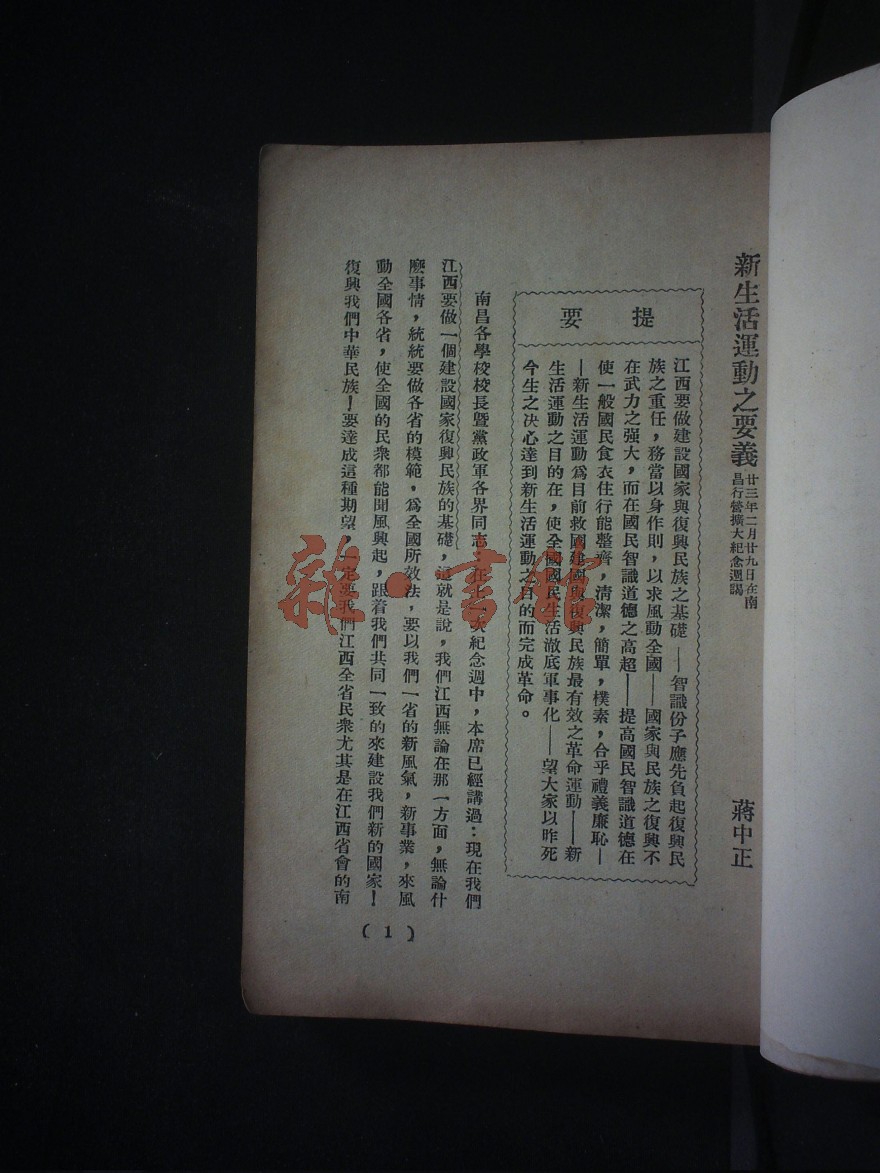 新生活運動之要義
廿三年二月廿九日在南
昌行營擴大紀念週講
蔣中正
提要
江西要做建設國家與復興民族之基礎——智識份子應先負起復興民
族之重任，務當以身作則，以求風動全國——國家與民族之復興不
在武力之强大，而在國民智識道德之高超——提高國民智識道德在
使一般國民食衣住行能整齊，清潔，簡單，樸素，合乎禮義廉恥—
—新生活運動爲目前救國建國與復興民族最有效之革命運動——新
生活運動之目的在，使全國國民生活澈底軍事化——望大家以昨死
今生之决心達到新生活運動之目的而完成革命。
南昌各學校校長暨黨政軍各界同志：在上一次紀念週中，本席已經講過：現在我們
江西要做一個建設國家復興民族的基礎，這就是說，我們江西無論在那一方面，無論什
麼事情，統統要做各省的模範，爲全國所效法，要以我們一省的新風氣，新事業，來風
動全國各省，使全國的民衆都能聞風興起，跟着我們共同一致的來建設我們新的國家！
復興我們中華民族！要達成這種期望，一定要我們江西全省民衆尤其是在江西省會的南
(1)
雜·書館